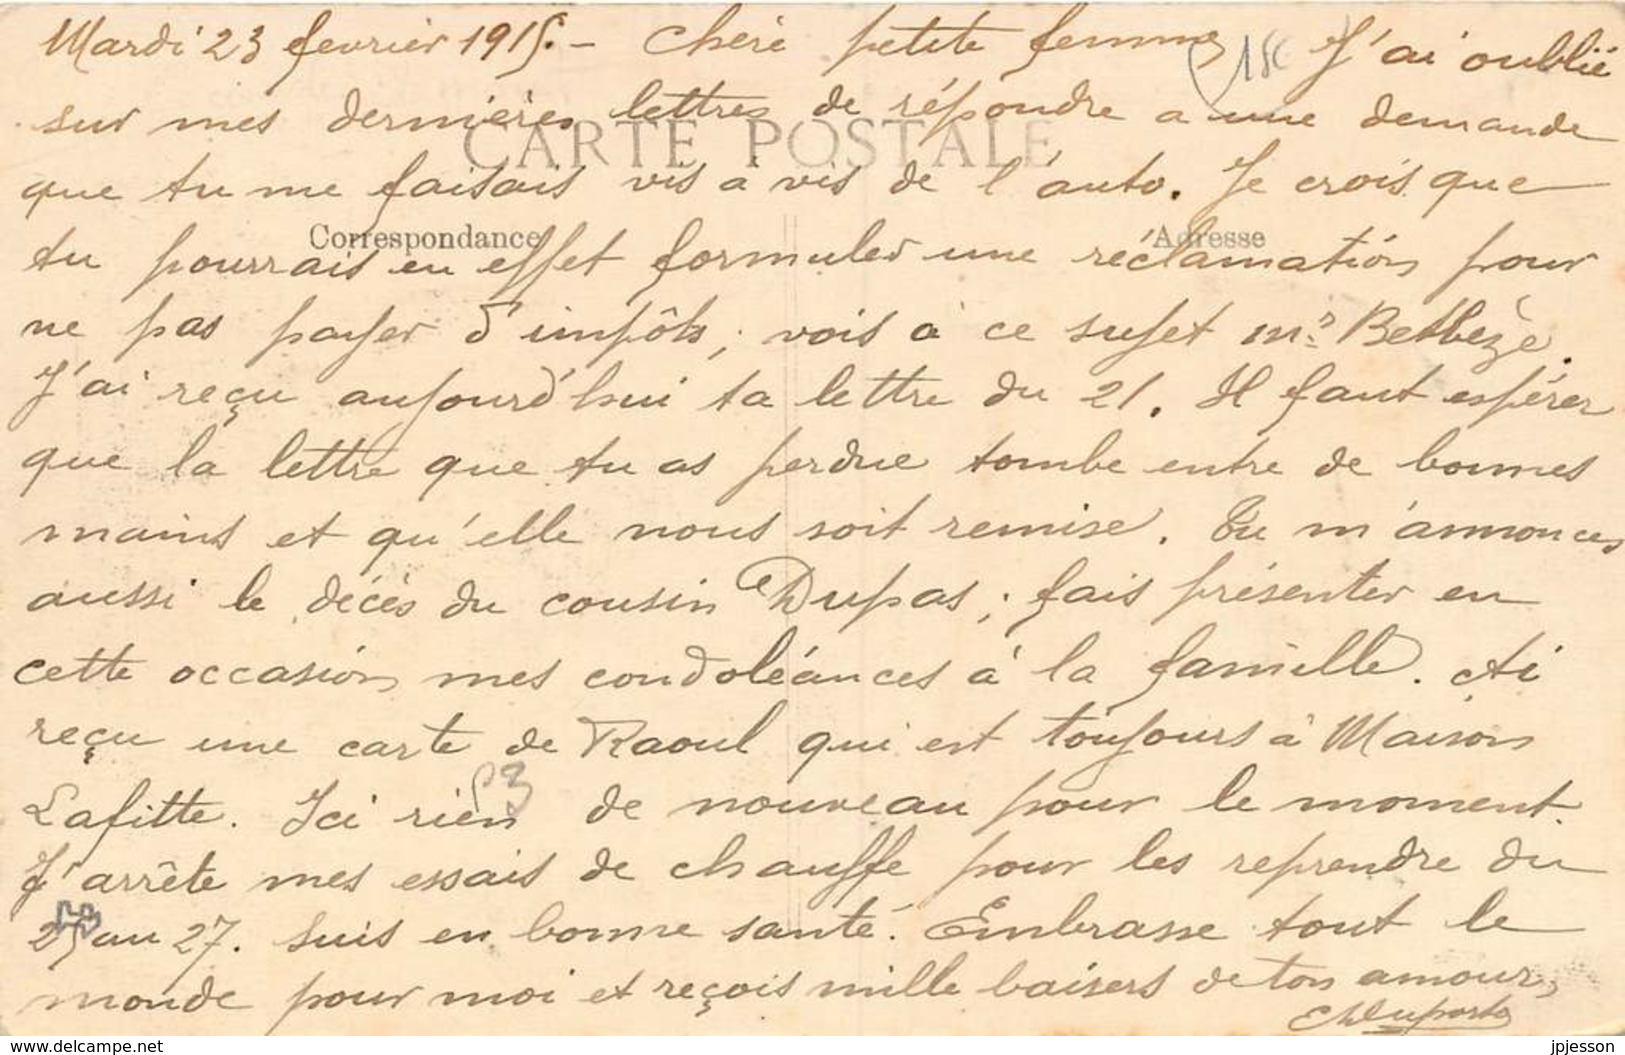 Mardi 23 fevrier 1915. - Chère petite femme J'ai oublié
sur mes dernières lettres de répondre a une demande
CARTE POSTALE
que tu me faisais vis a vis de l'auto. Je crois que
Correspondance Adresse
tu pourrais en effet formuler une réclamation pour
ne pas payer d'impôts; vois à ce sujet Mr Betbèze.
J'ai reçu aujourd'hui ta lettre du 21. Il faut espérer
que la lettre que tu as perdue tombe entre de bonnes
mains et qu'elle nous soit remise. Tu m'annonces
aussi le décès du cousin Dupas; fais présenter en
cette occasion mes condoléances à la famille. Ai
reçu une carte de Raoul qui est toujours à Maison
Lafitte. Ici rien de nouveau pour le moment.
J'arrête mes essais de chauffe pour les reprendre du
25 au 27. Suis en bonne santé. Embrasse tout le
monde pour moi et reçois mille baisers de ton amour,
www.delcampe.net jpjesson